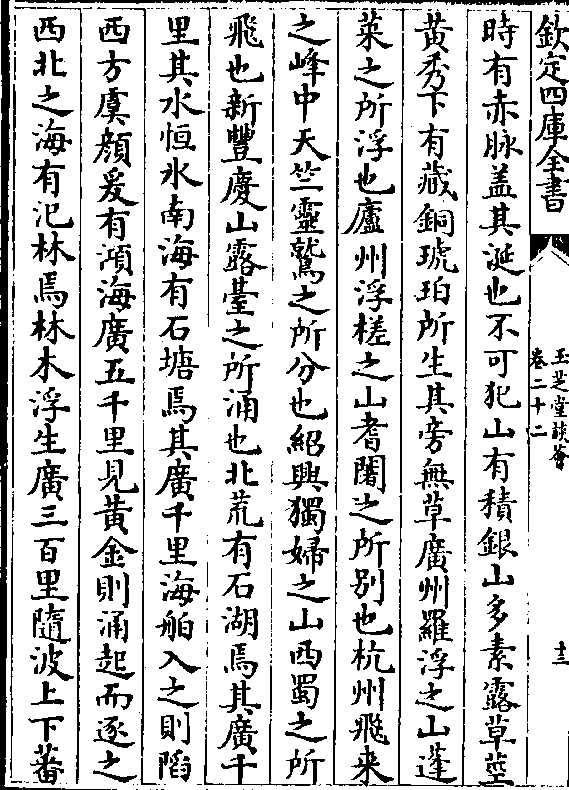 欽定四庫全書
玉芝堂談薈
卷二十二
十三
時有赤脉盖其涎也不可犯山有積銀山多素露草莖
黄秀下有藏銅琥珀所生其旁無草廣州羅浮之山蓬
萊之所浮也廬州浮槎之山耆闍之所别也杭州飛来
之峰中天竺靈鷲之所分也紹興獨婦之山西蜀之所
飛也新豐慶山露臺之所涌也北荒有石湖焉其廣千
里其水恒氷南海有石塘焉其廣千里海舶入之則陷
西方虞顔爰有澒海廣五千里見黄金則涌起而逐之
西北之海有汜林焉林木浮生廣三百里隨波上下蕃